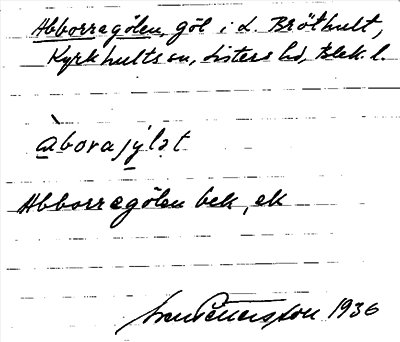 Abborregölen, göl i L. Bröthult,
Kyrkhults sn, Listers hd, Blek. l.
àborajylət
Abborregölen bek, ek
1936